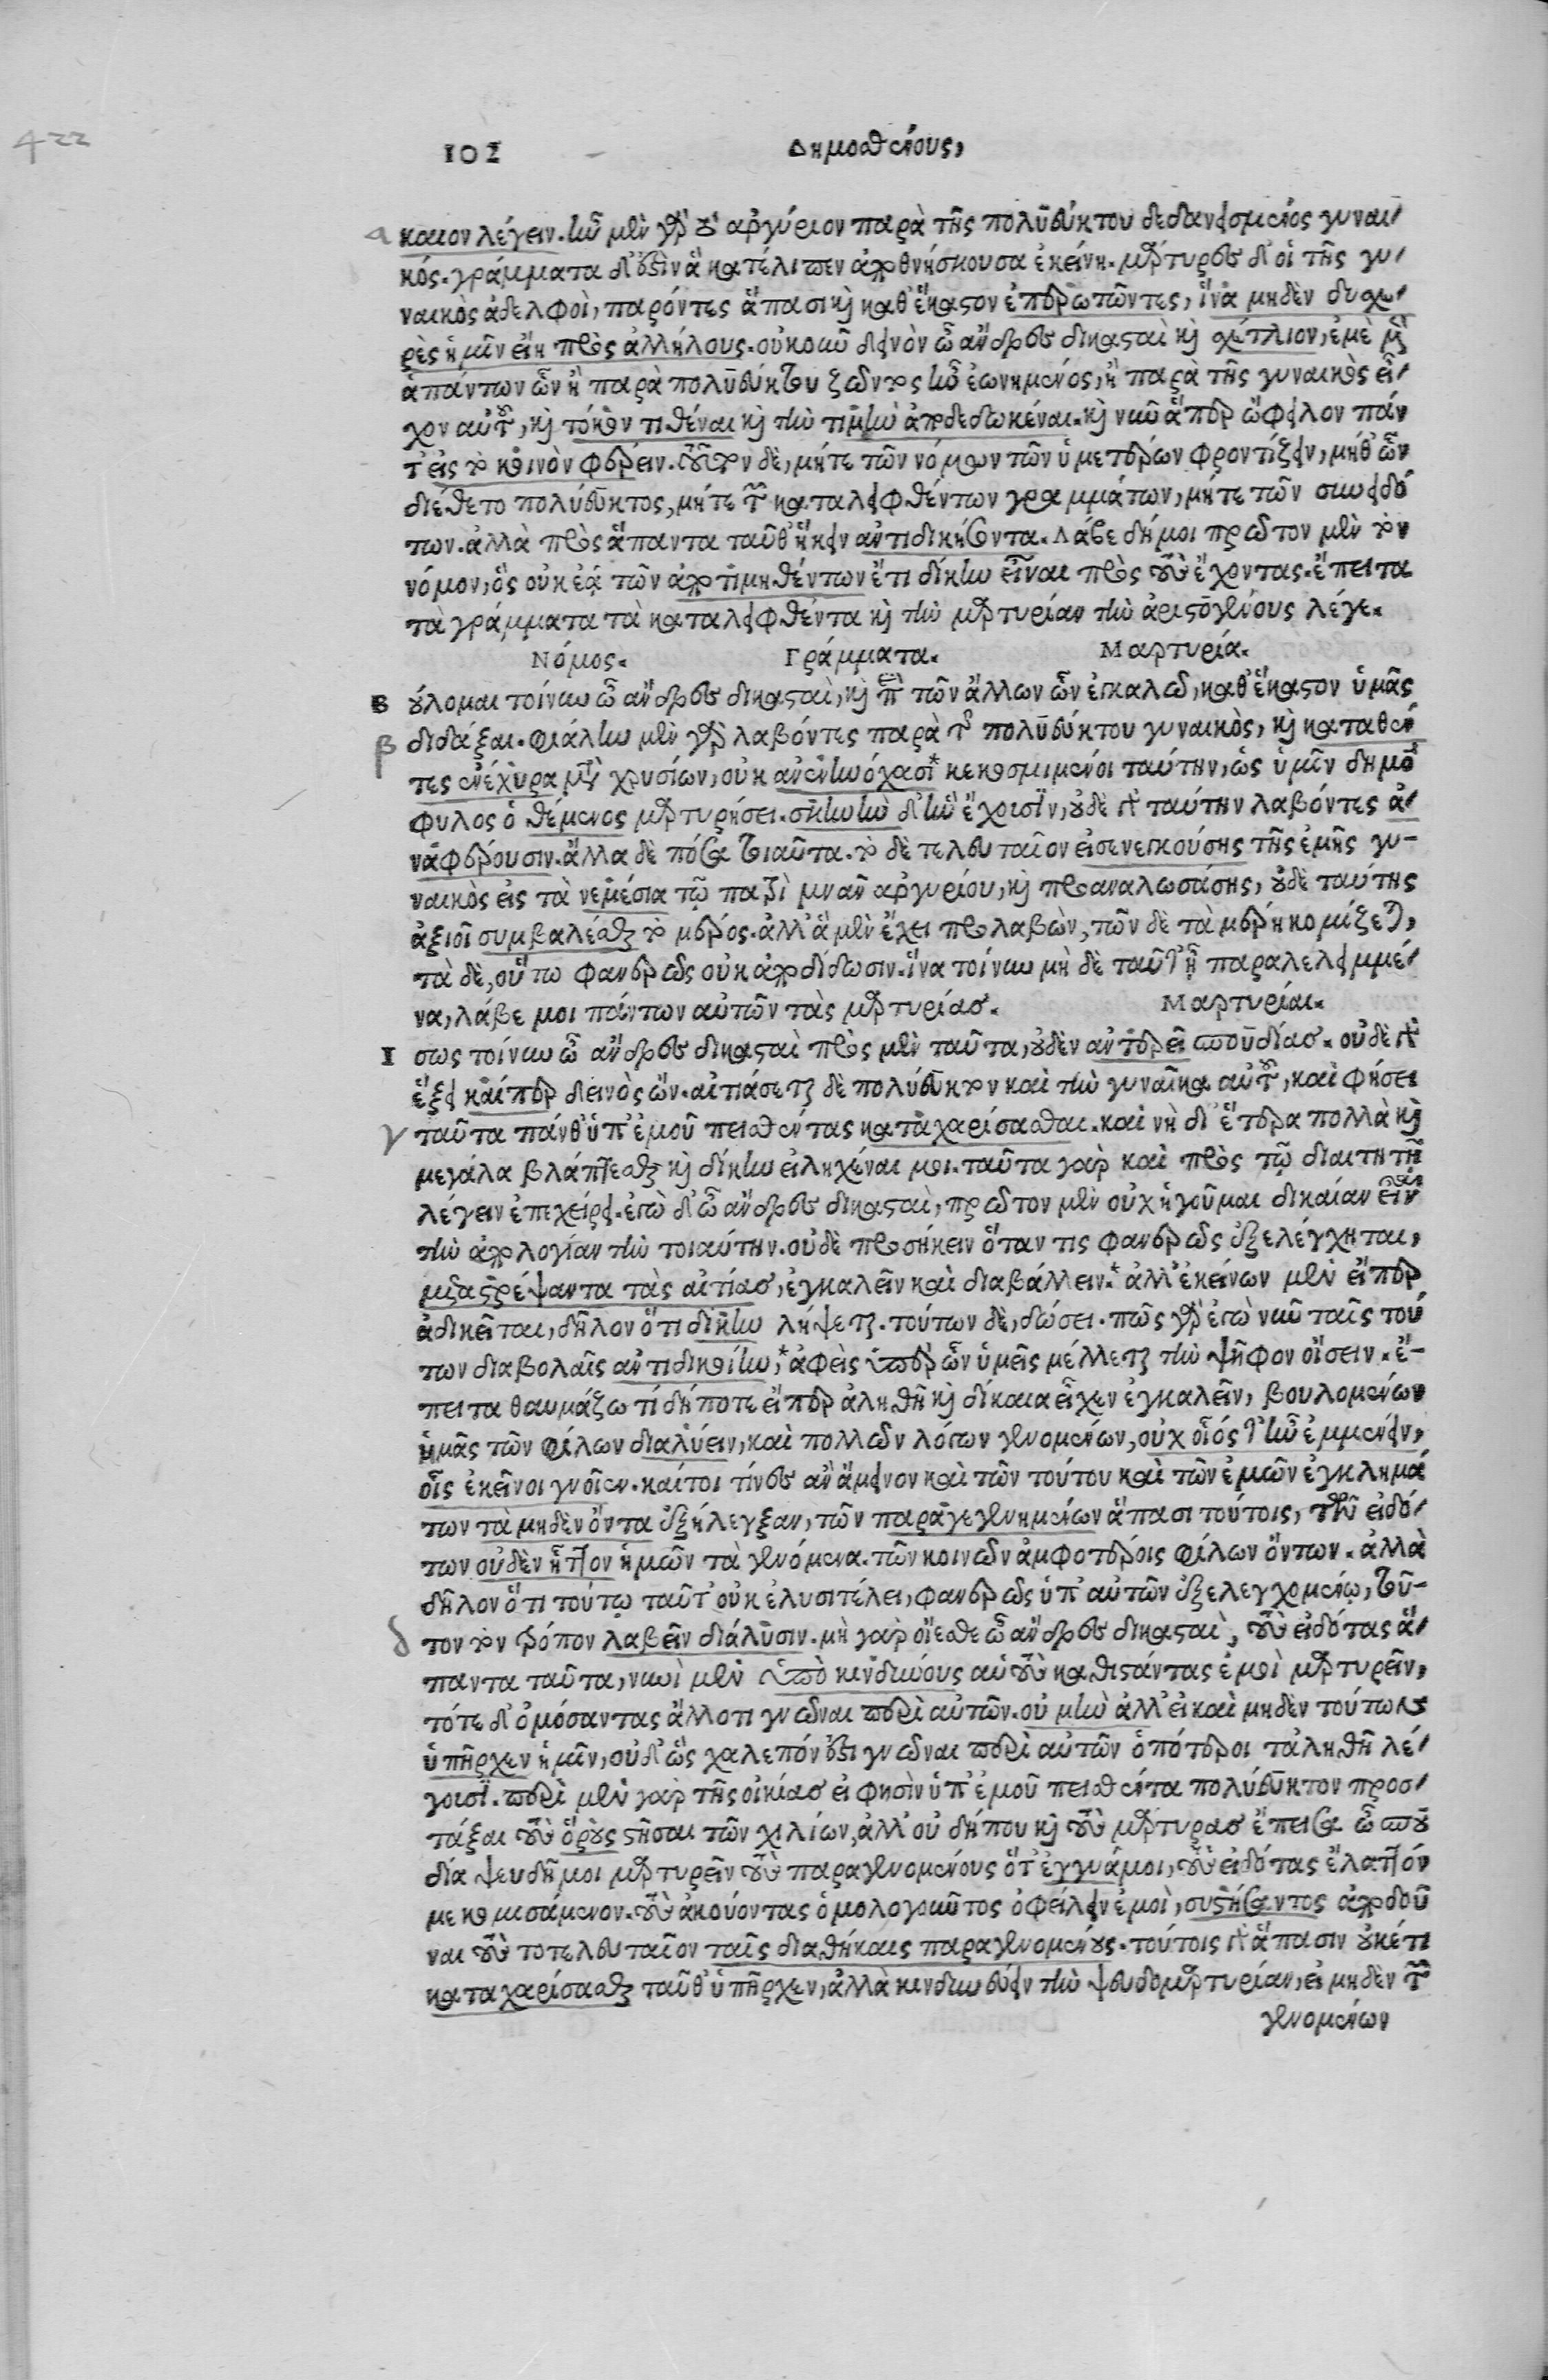 422
102 Δημοσθένους,
α καιον λέγειν. ἦν μὲν γὰρ οὗ ἀργύριον παρὰ τῆς πολυεύκτου δεδανεισμένος γυναι-
κός. γράμματα δ' ἐστὶν ἃ κατέλιπεν ἀποθνήσκουσα ἐκείνη. μάρτυρες δ' οἱ τῆς γυ-
ναικὸς ἀδελφοὶ, παρόντες ἅπασι καὶ καθ' ἕκαστον ἐπερωτῶντες, ἵνα μηδὲν δυσχε-
ρὲς ἡμῖν εἴη πρὸς ἀλλήλους. οὐκοῦν δεινὸν ὦ ἄνδρες δικασταὶ καὶ σχέτλιον, ἐμὲ μὲν
ἁπάντων ὧν ἢ παρὰ πολυεύκτου ζῶντος ἦν ἐωνημένος, ἢ παρὰ τῆς γυναικὸς εἶ-
χον αὐτοῦ, καὶ τόκον τιθέναι καὶ τὴν τιμὴν ἀποδεδωκέναι. καὶ νῦν ἅπερ ὤφειλον πάν
τ' εἰς τὸ κοινὸν φέρειν. τοῦτον δὲ, μήτε τῶν νόμων τῶν ὑμετέρων φροντίζειν, μήθ' ὧν
διέθετο πολύευκτος, μήτε τῶν καταλειφθέντων γραμμάτων, μήτε τῶν συνειδό
των. ἀλλὰ πρὸς ἅπαντα ταῦθ' ἥκειν ἀντιδικήσοντα. Λάβε δή μοι πρῶτον μὲν τὸν
νόμον, ὃς οὐκ ἐᾷ τῶν ἀποτιμηθέντων ἔτι δίκην εἶναι πρὸς τοὺς ἔχοντας. ἔπειτα
τὰ γράμματα τὰ καταλειφθέντα καὶ τὴν μαρτυρίαν τὴν ἀριστογένους λέγε.
Νόμος. Γράμματα. Μαρτυρία.
Β ούλομαι τοίνυν ὦ ἄνδρες δικασταὶ, καὶ ἐπὶ τῶν ἄλλων ὧν ἐγκαλῶ, καθ' ἕκαστον ὑμᾶς
β διδάξαι. φιάλην μὲν γὰρ λαβόντες παρὰ τῆς πολυεύκτου γυναικὸς, καὶ καταθέν
τες ἐνέχυρα μετὰ χρυσίων, οὐκ ἀνενηνόχασι* κεκομισμένοι ταύτην, ὡς ὑμῖν δημό
φυλος ὁ θέμενος μαρτυρήσει. σκηνὴν δ' ἣν ἔχουσιν, οὐδὲ ταύτην λαβόντες ἀ-
ναφέρουσιν. ἄλλα δὲ πόσα τοιαῦτα. τὸ δὲ τελευταῖον εἰσενεγκούσης τῆς ἐμῆς γυ-
ναικὸς εἰς τὰ νεμέσια τῷ πατρὶ μνᾶν ἀργυρίου, καὶ προαναλωσάσης, οὐδὲ ταύτης
ἀξιοῖ συμβαλέσθαι τὸ μέρος. ἀλλ' ἃ μὲν ἔχει προλαβὼν, τῶν δὲ τὰ μέρη κομίζεται,
τὰ δὲ, οὕτω φανερῶς οὐκ ἀποδίδωσιν. ἵνα τοίνυν μὴ δὲ ταῦτ' ᾖ παραλελειμμέ-
να, λάβε μοι πάντων αὐτῶν τὰς μαρτυρίας. Μαρτυρίαι.
Ι σως τοίνυν ὦ ἄνδρες δικασταὶ πρὸς μὲν ταῦτα, οὐδὲν ἀντερεῖ σπουδίας. οὐδὲ γὰρ
ἕξει καίπερ δεινὸς ὤν. αἰτιάσεται δὲ πολύευκτον καὶ τὴν γυναῖκα αὐτοῦ, καὶ φήσει
γ ταῦτα πάνθ' ὑπ' ἐμοῦ πεισθέντας καταχαρίσασθαι. καὶ νὴ δί' ἕτερα πολλὰ καὶ
μεγάλα βλάπτεσθαι καὶ δίκην εἰληχέναι μοι. ταῦτα γὰρ καὶ πρὸς τῷ διαιτητῇ
λέγειν ἐπεχείρει. ἐγὼ δ' ὦ ἄνδρες δικασταὶ, πρῶτον μὲν οὐχ ἡγοῦμαι δικαίαν εἶναι
τὴν ἀπολογίαν τὴν τοιαύτην. οὐδὲ προσήκειν ὅταν τις φανερῶς ἐξελέγχηται,
μεταστρέψαντα τὰς αἰτίας, ἐγκαλεῖν καὶ διαβάλλειν.* ἀλλ' ἐκείνων μὲν εἴπερ
ἀδικεῖται, δῆλον ὅτι δίκην λήψεται. τούτων δὲ, δώσει. πῶς γὰρ ἐγὼ νῦν ταῖς τού
των διαβολαῖς ἀντιδικοίην,* ἀφεὶς ὑπὲρ ὧν ὑμεῖς μέλλετε τὴν ψῆφον οἴσειν. ἔ-
πειτα θαυμάζω τί δήποτε εἴπερ ἀληθῆ καὶ δίκαια εἶχεν ἐγκαλεῖν, βουλομένων
ἡμᾶς τῶν φίλων διαλύειν, καὶ πολλῶν λόγων γενομένων, οὐχ οἷός τ' ἦν ἐμμένειν,
οἷς ἐκεῖνοι γνοῖεν. καίτοι τίνες ἂν ἄμεινον καὶ τῶν τούτου καὶ τῶν ἐμῶν ἐγκλημά
των τὰ μηδὲν ὄντα ἐξήλεγξαν, τῶν παραγεγενημένων ἅπασι τούτοις, τῶν εἰδό-
των οὐδὲν ἧττον ἡμῶν τὰ γενόμενα. τῶν κοινῶν ἀμφοτέροις φίλων ὄντων. ἀλλὰ
δῆλον ὅτι τούτῳ ταῦτ' οὐκ ἐλυσιτέλει, φανερῶς ὑπ' αὐτῶν ἐξελεγχομένῳ, τοῦ-
δ τον τὸν τρόπον λαβεῖν διάλυσιν. μὴ γὰρ οἴεσθε ὦ ἄνδρες δικασταὶ, τοὺς εἰδότας ἅ-
παντα ταῦτα, νυνὶ μὲν ὑπὸ κινδύνους αὑτοὺς καθιστάντας ἐμοὶ μαρτυρεῖν,
τότε δ' ὀμόσαντας ἄλλο τι γνῶναι περὶ αὐτῶν. οὐ μὴν ἀλλ' εἰ καὶ μηδὲν τούτων
ὑπῆρχεν ἡμῖν, οὐδ' ὣς χαλεπόν ἐστι γνῶναι περὶ αὐτῶν ὁπότεροι τἀληθῆ λέ-
γουσι. περὶ μὲν γὰρ τῆς οἰκίας εἰ φησὶν ὑπ' ἐμοῦ πεισθέντα πολύευκτον προσ-
τάξαι τοὺς ὅρους στῆσαι τῶν χιλίων, ἀλλ' οὐ δήπου καὶ τοὺς μάρτυρας ἔπεισα ὦ σπου
δία ψευδῆ μοι μαρτυρεῖν τοὺς παραγενομένους ὅτ' ἐγγυᾶ μοι, τοὺς εἰδότας ἔλαττόν
με κομισάμενον. τοὺς ἀκούοντας ὁμολογοῦντος ὀφείλειν ἐμοὶ, συστήσαντος ἀποδοῦ
ναι τοὺς τοτελευταῖον ταῖς διαθήκαις παραγενομένους. τούτοις γὰρ ἅπασιν οὐκέτι
καταχαρίσασθαι ταῦθ' ὑπῆρχεν, ἀλλὰ κινδυνεύειν τὴν ψευδομαρτυρίαν, εἰ μηδὲν τῶν
γενομένων